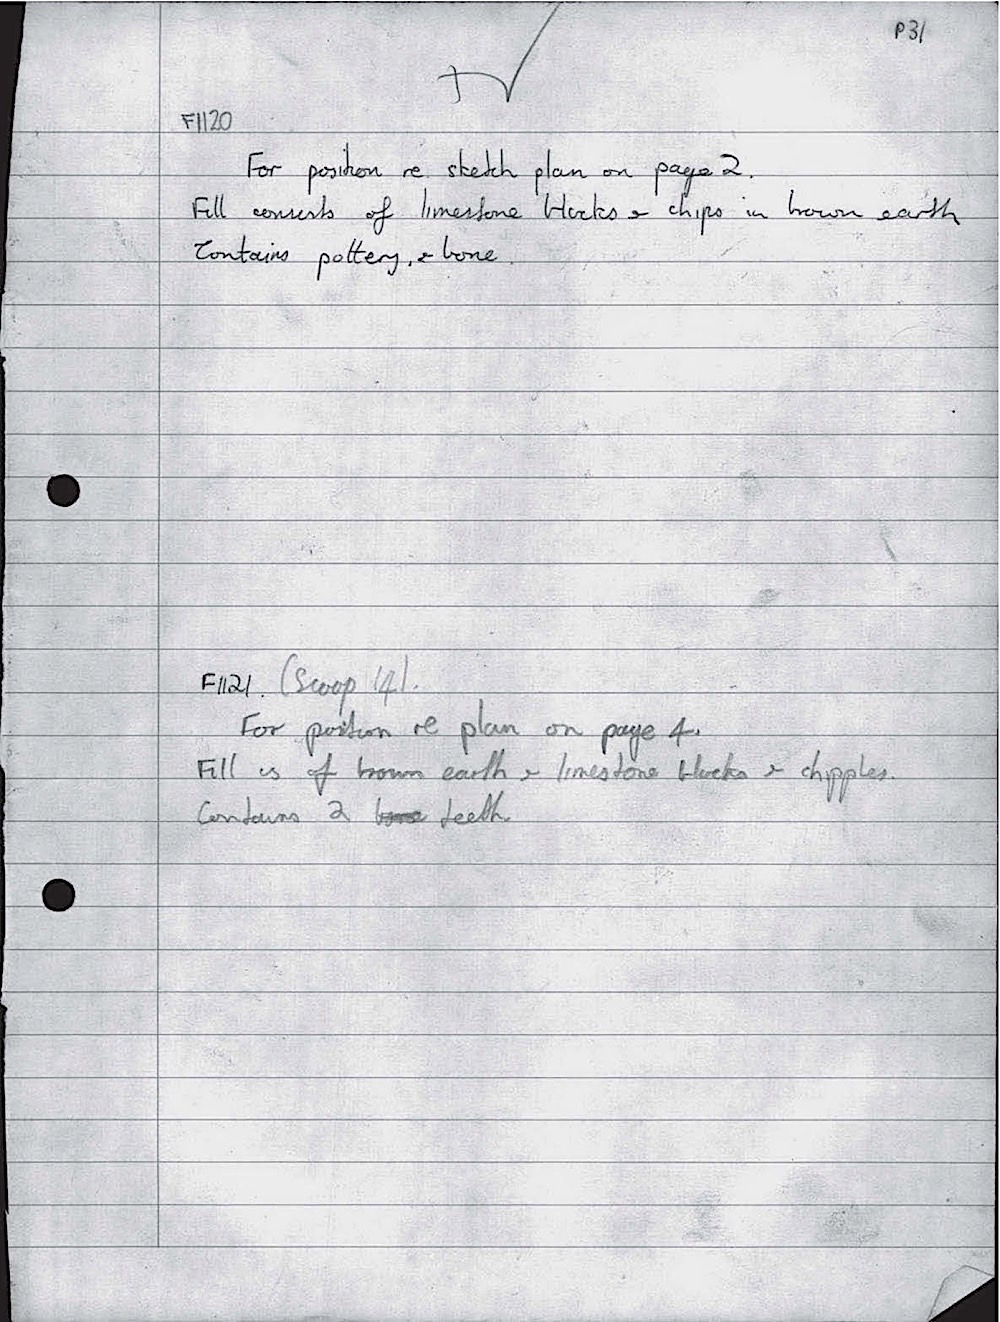 P31
F1120
For position re sketch plan on page 2.
Fill consists of limestone blocks & chips in brown earth
Contains pottery, & bone.
F1121. (Scoop 14).
For position re plan on page 4.
Fill is of brown earth & limestone blocks & chipples.
Contains 2 bone teeth.